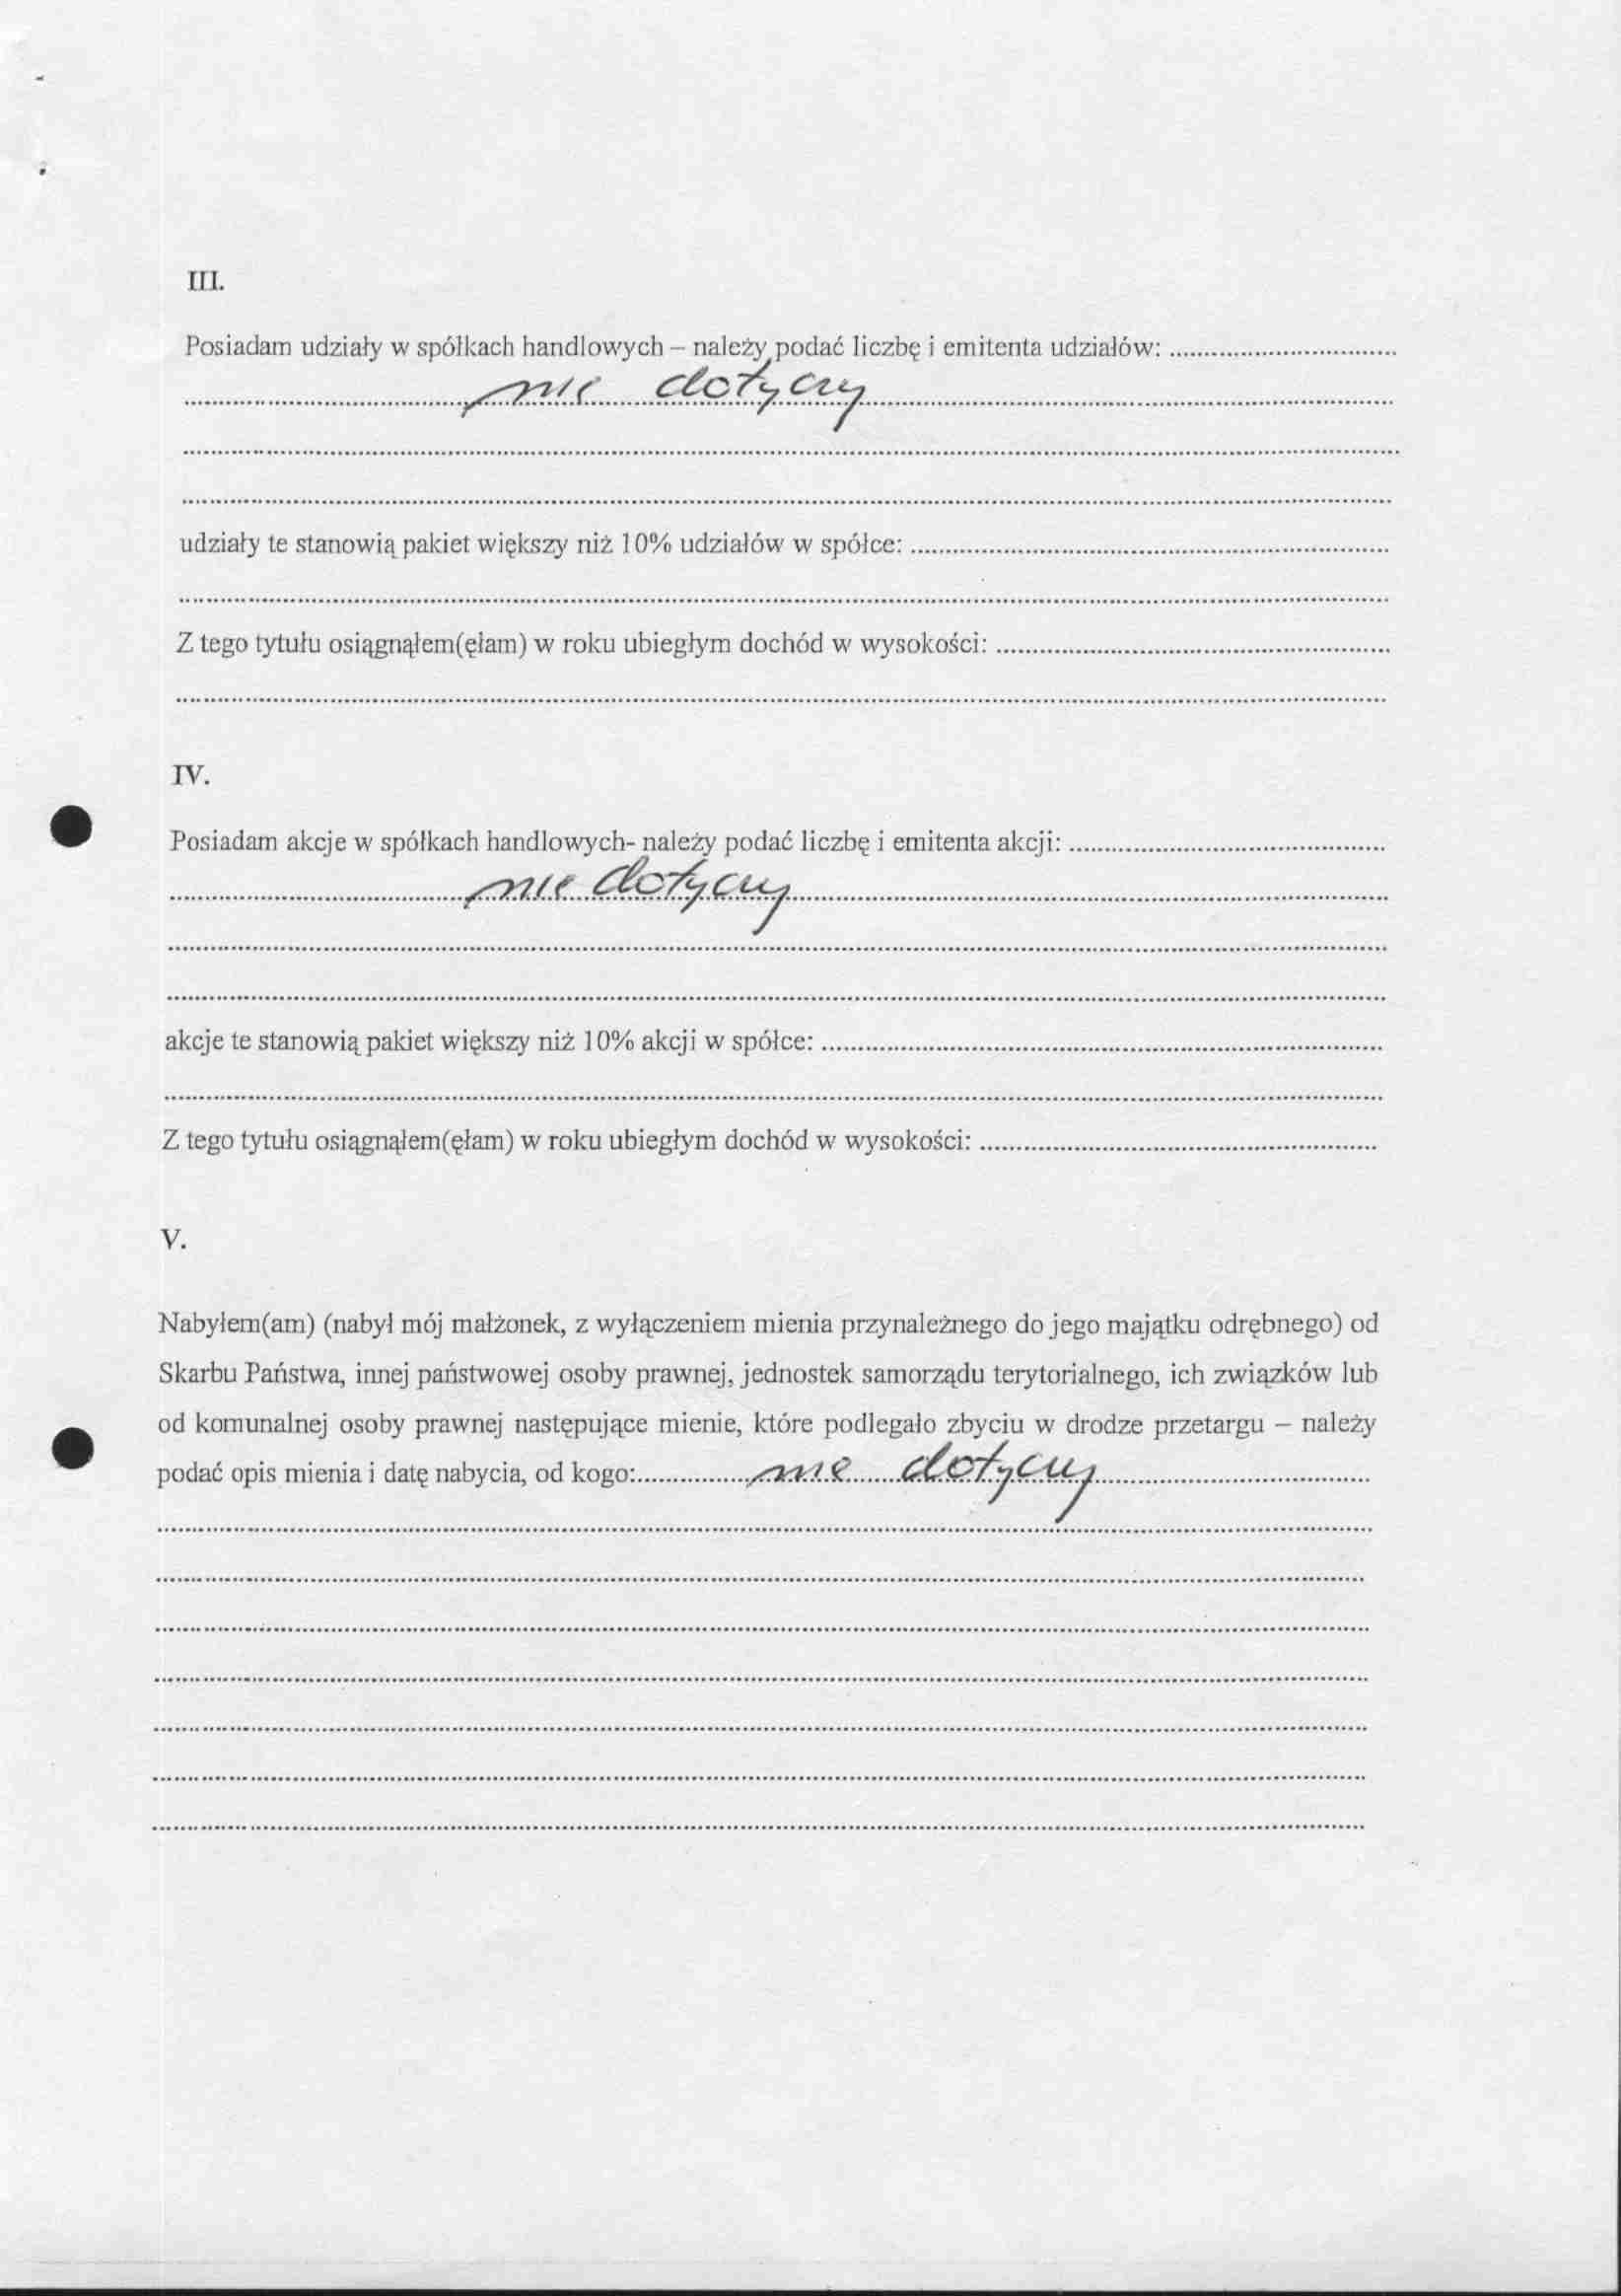 III.
Posiadam udziały w spółkach handlowych – należy podać liczbę i emitenta udziałów: ................................
nie dotyczy
udziały te stanowią pakiet większy niż 10% udziałów w spółce: ................................
Z tego tytułu osiągnąłem(ęłam) w roku ubiegłym dochód w wysokości: ................................
IV.
Posiadam akcje w spółkach handlowych- należy podać liczbę i emitenta akcji: ................................
nie dotyczy
akcje te stanowią pakiet większy niż 10% akcji w spółce: ................................
Z tego tytułu osiągnąłem(ęłam) w roku ubiegłym dochód w wysokości: ................................
V.
Nabyłem(am) (nabył mój małżonek, z wyłączeniem mienia przynależnego do jego majątku odrębnego) od
Skarbu Państwa, innej państwowej osoby prawnej, jednostek samorządu terytorialnego, ich związków lub
od komunalnej osoby prawnej następujące mienie, które podlegało zbyciu w drodze przetargu – należy
podać opis mienia i datę nabycia, od kogo:................nie dotyczy................